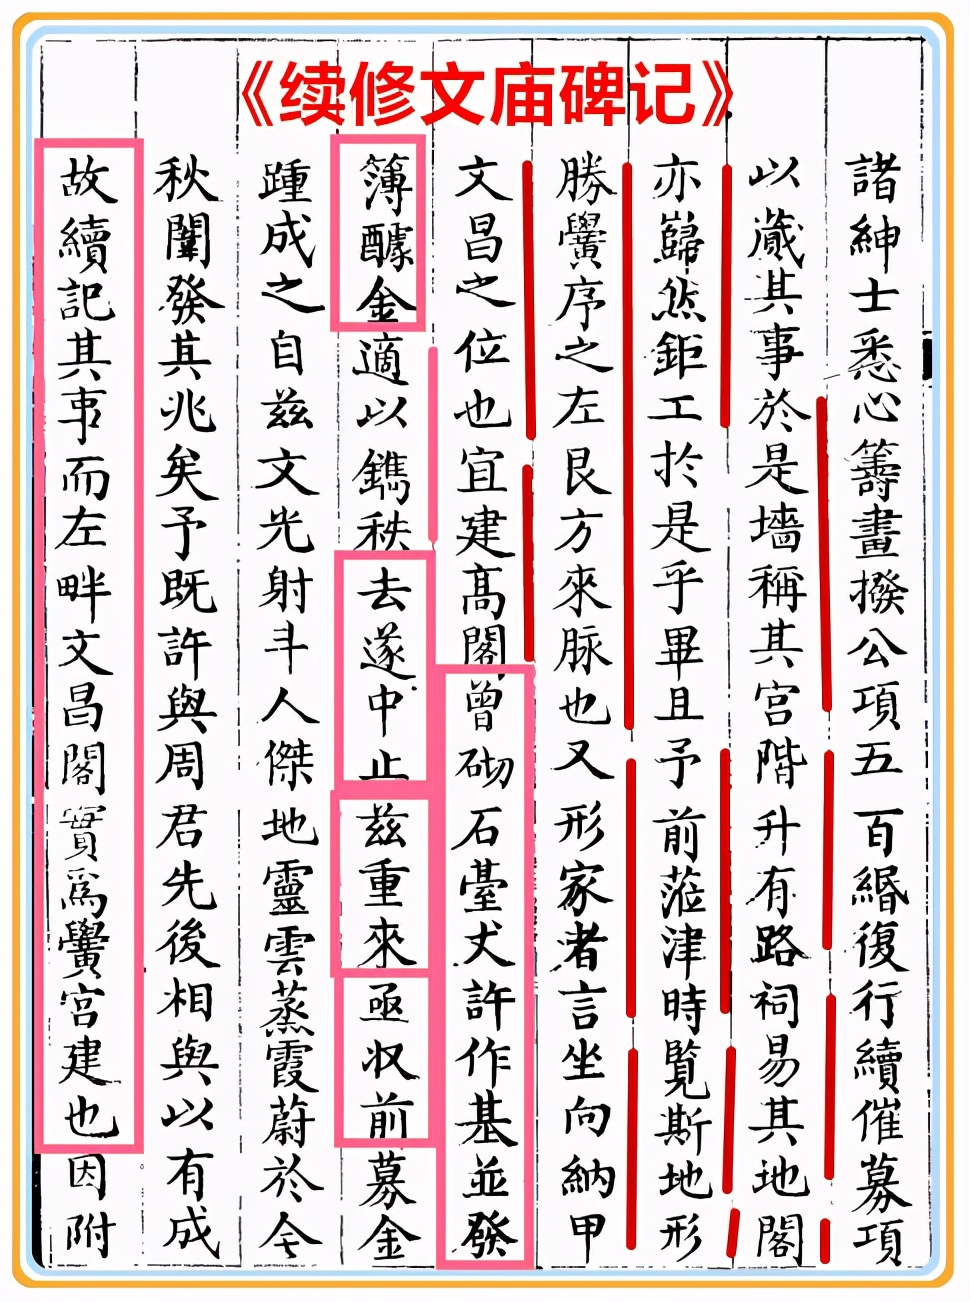 《续修文庙碑记》
諸紳士悉心籌畫撥公項五百緡復行續催募項
以蕆其事於是墻稱其宫階升有路祠易其地閣
亦巋然鉅工於是乎畢且予前蒞津時覽斯地形
勝黌序之左艮方來脉也又形家者言坐向納甲
文昌之位也宜建高閣曾砌石臺丈許作基並發
簿醵金適以鐫秩去遂中止兹重來亟収前募金
踵成之自兹文光射斗人傑地靈雲蒸霞蔚於今
秋闈發其兆矣予既許與周君先後相與以有成
故續記其事而左畔文昌閣實爲黌宫建也因附